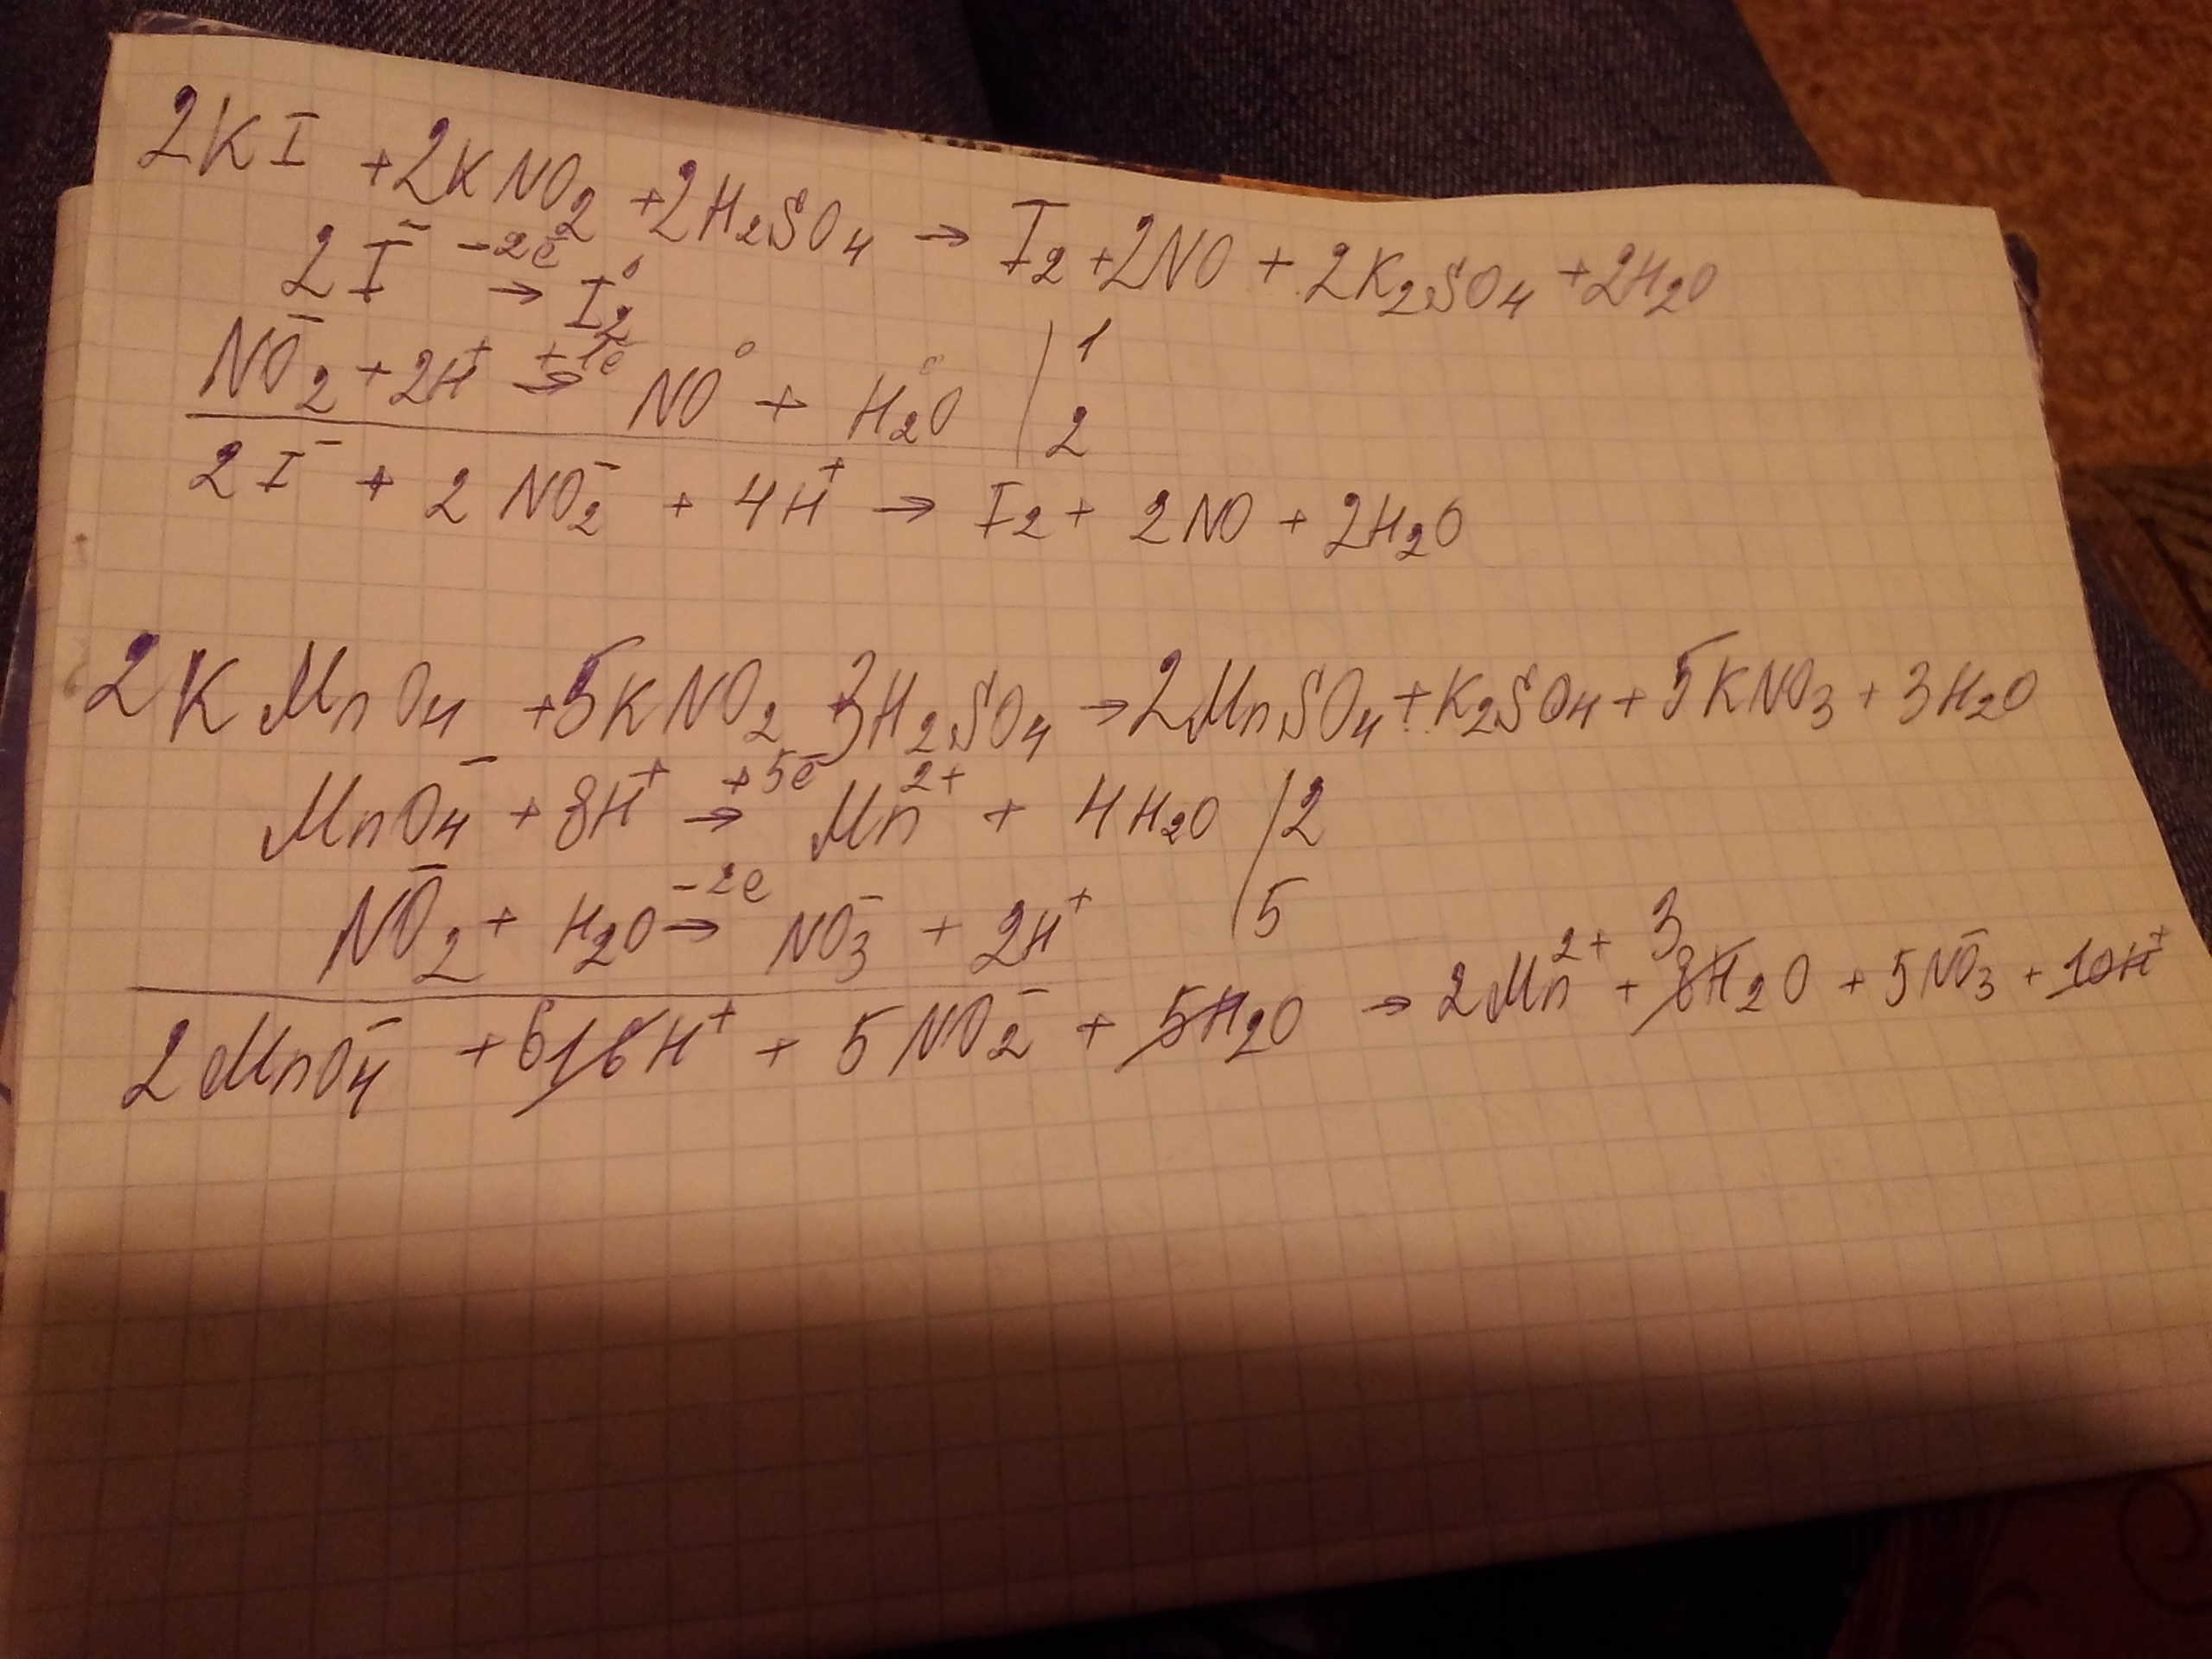 2KI + 2KNO₂ + 2H₂SO₄ → I₂ + 2NO + 2K₂SO₄ + 2H₂O
2I⁻ -2e̅ → I₂⁰ | 1
NO₂⁻ + 2H⁺ +1e̅ → NO⁰ + H₂O⁰ | 2
2I⁻ + 2NO₂⁻ + 4H⁺ → I₂ + 2NO + 2H₂O
2KMnO₄ + 5KNO₂ + 3H₂SO₄ → 2MnSO₄ + K₂SO₄ + 5KNO₃ + 3H₂O
MnO₄⁻ + 8H⁺ +5e̅ → Mn²⁺ + 4H₂O | 2
NO₂⁻ + H₂O -2e → NO₃⁻ + 2H⁺ | 5
2MnO₄⁻ + 6 16H⁺ + 5NO₂⁻ + 5H₂O → 2Mn²⁺ + 3 8H₂O + 5NO₃⁻ + 10H⁺